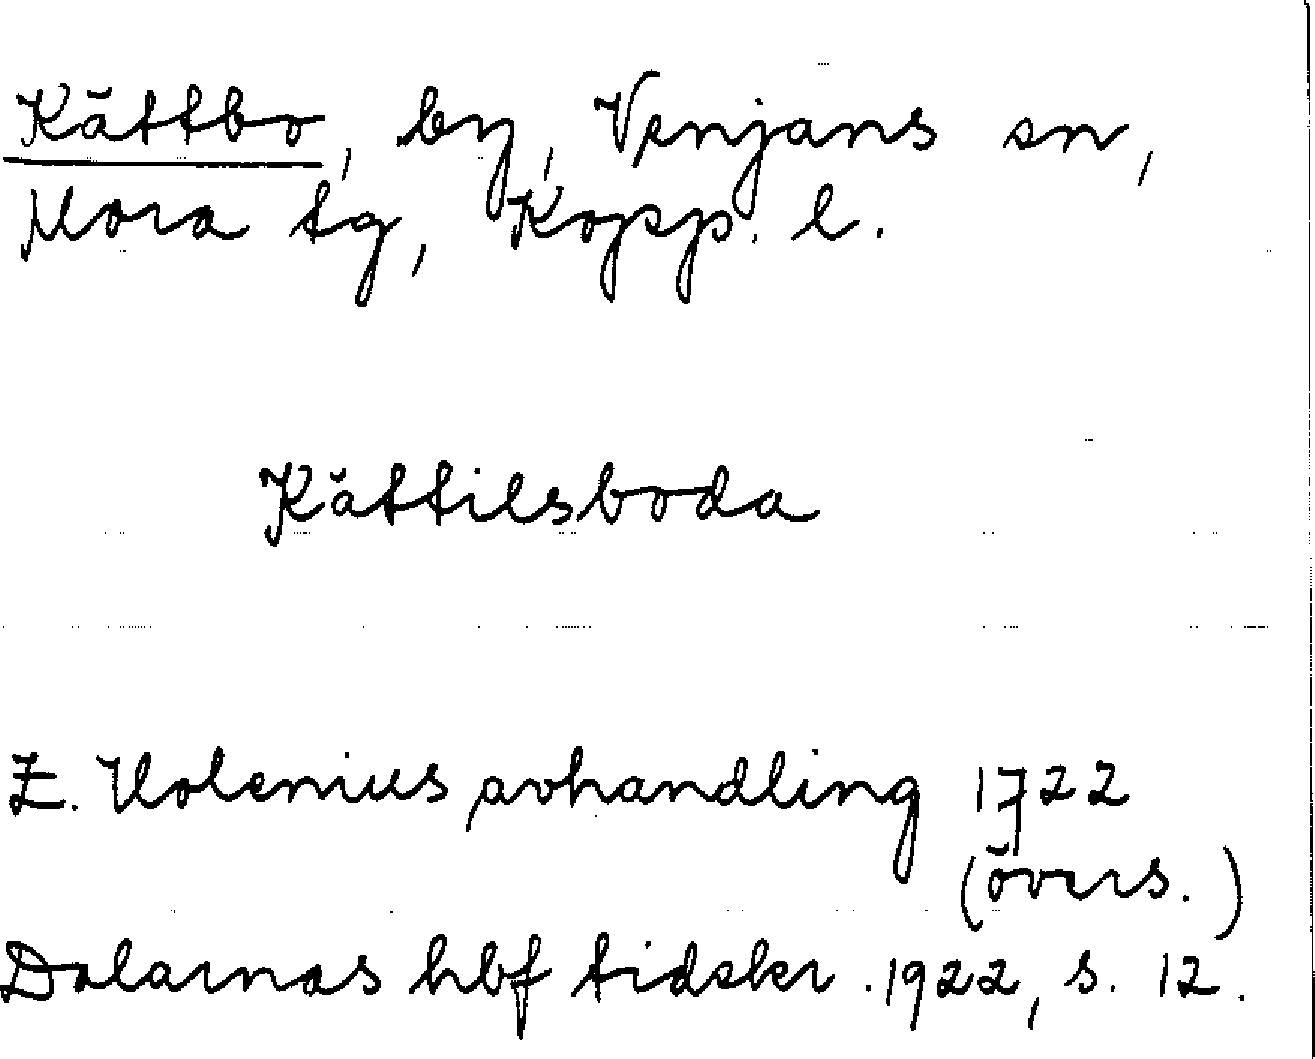 Kättbo, by, Venjans sn,
Mora tg, Kopp. l.
Kättilsboda
Z. Holenius, avhandling 1722
(övers.)
Dalarnas hbf tidskr. 1922, s. 12.